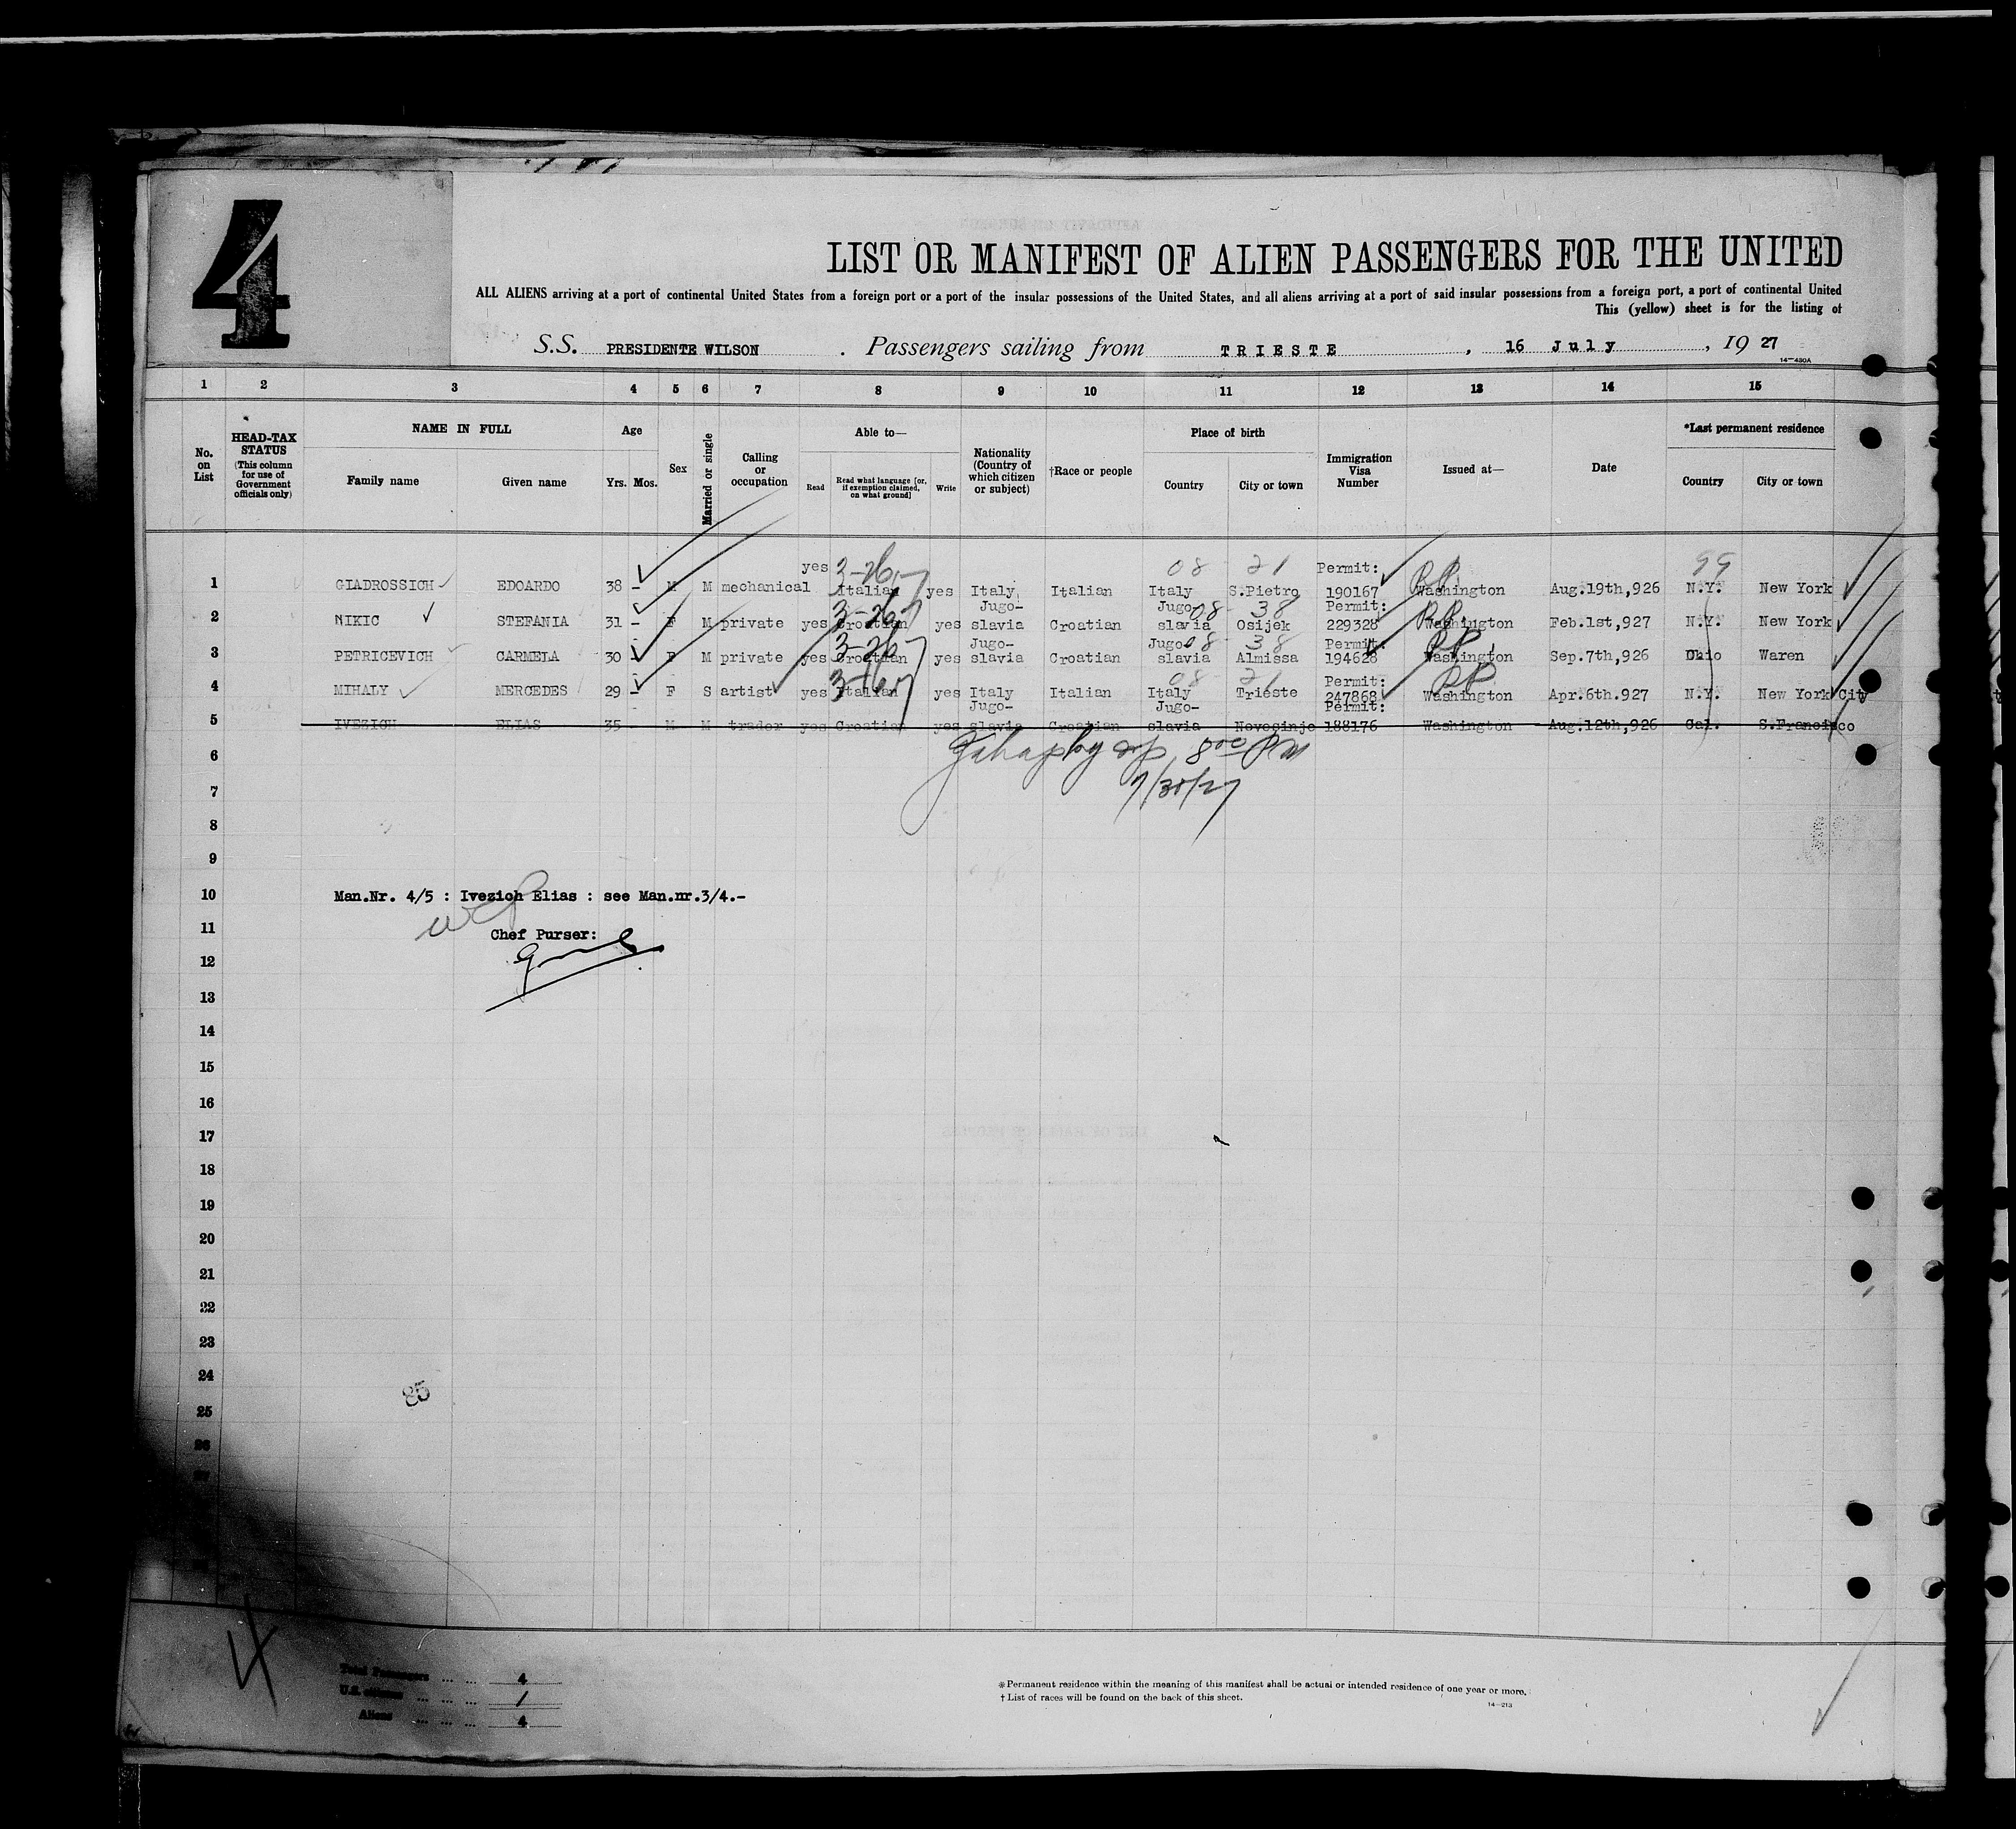 4
LIST OR MANIFEST OF ALIEN PASSENGERS FOR THE UNITED
ALL ALIENS arriving at a port of continental United States from a foreign port or a port of the insular possessions of the United States, and all aliens arriving at a port of said insular possessions from a foreign port, a port of continental United
This (yellow) sheet is for the listing of
S.S. PRESIDENTE WILSON . Passengers sailing from TRIESTE , 16 July , 19 27
14—480A
1 2 3 4 5 6 7 8 9 10 11 12 13 14 15
No. on List
HEAD-TAX STATUS (This column for use of Government officials only)
NAME IN FULL
Family name Given name
Age
Yrs. Mos.
Sex
Married or single
Calling or occupation
Able to—
Read Read what language [or, if exemption claimed, on what ground] Write
Nationality (Country of which citizen or subject)
†Race or people
Place of birth
Country City or town
Immigration Visa Number
Issued at—
Date
*Last permanent residence
Country City or town
yes 3-26- 08 21 Permit: PP 99
1 GIADROSSICH EDOARDO 38 - M M mechanical Italian yes Italy Italian Italy S.Pietro 190167 Washington Aug.19th,926 N.Y. New York
3-26 Jugo- Jugo- 08 38 Permit: PP
2 NIKIC STEFANIA 31 - F M private yes Croatian yes slavia Croatian slavia Osijek 229328 Washington Feb.1st,927 N.Y. New York
3-26 Jugo- Jugo- 08 38 Permit: PP
3 PETRICEVICH CARMELA 30 - F M private yes Croatian yes slavia Croatian slavia Almissa 194628 Washington Sep.7th,926 Ohio Waren
08 21 Permit: PP
4 MIHALY MERCEDES 29 - F S artist yes Italian yes Italy Italian Italy Trieste 247868 Washington Apr.6th.927 N.Y. New York City
Jugo- Jugo- Permit:
5 IVEZICH ELIAS 35 - M M trader yes Croatian yes slavia Croatian slavia Novosinje 188176 Washington Aug.12th,926 Cal. S.Francisco
6 8 00 PM
7 7/30/27
8
9
10 Man.Nr. 4/5 : Ivezich Elias : see Man.nr.3/4.-
11 Chef Purser:
12
13
14
15
16
17
18
19
20
21
22
23
24
25
26
27
85
4
Total Passengers ... ... 4
U.S. citizens ... ... ... 1
Aliens ... ... ... 4
*Permanent residence within the meaning of this manifest shall be actual or intended residence of one year or more.
†List of races will be found on the back of this sheet.
14—213